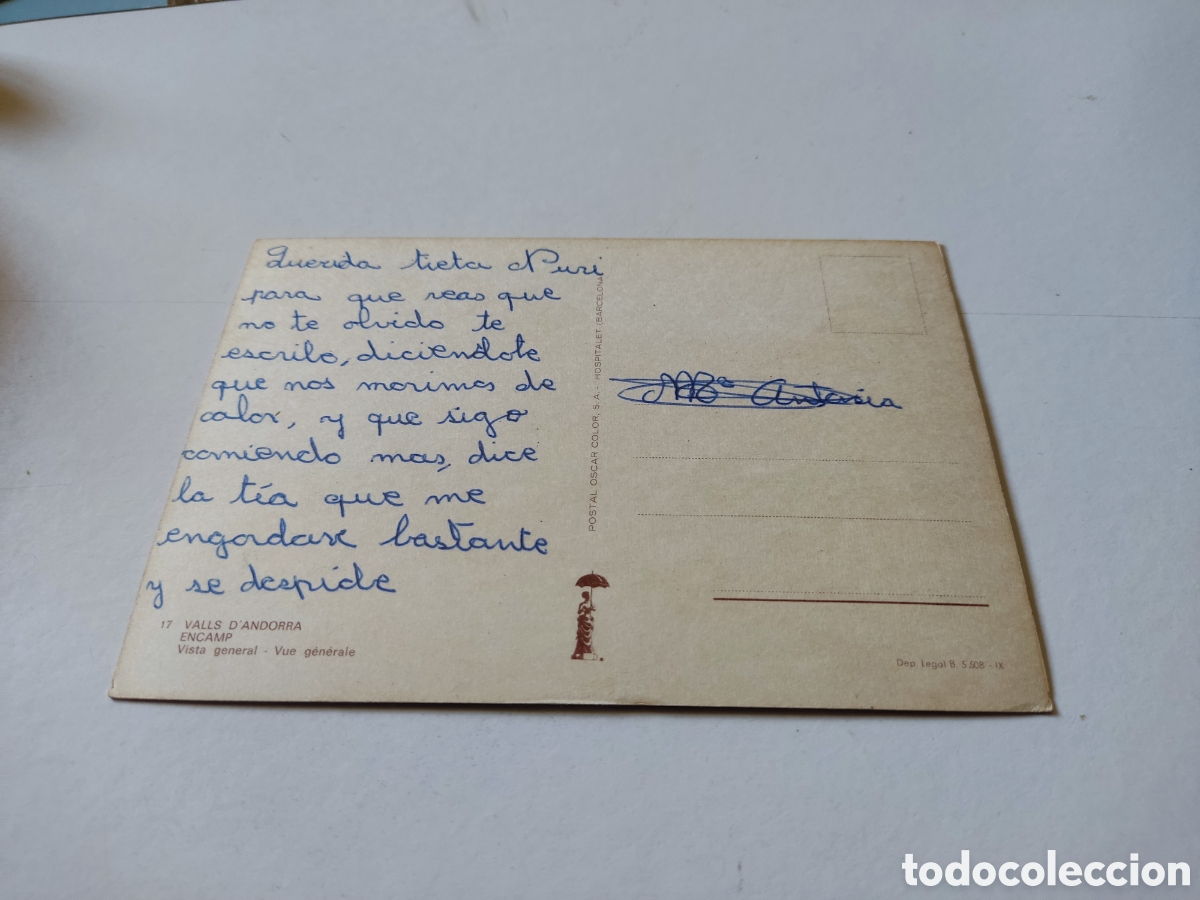 Querida tieta Nuri
para que veas que
no te olvido te
escribo, diciendote
que nos morimos de
calor, y que sigo
comiendo mas, dice
la tía que me
engordare bastante
y se despide
17 VALLS D'ANDORRA
ENCAMP
Vista general - Vue générale
POSTAL OSCAR COLOR, S.A. - HOSPITALET (BARCELONA)
Mª Antonia
Dep. Legal B. 5.508 - IX
todocoleccion